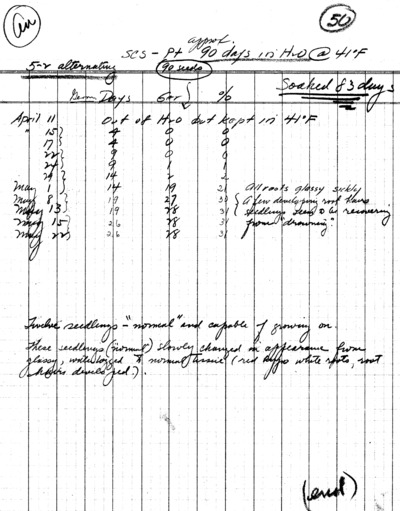 50
approx.
SCS - Pt 90 days in H2O @ 41°F
5-2 alternating 90 seeds
Soaked 83 days
Germ Days Ger %
April 11 Out of H2O but kept in 41°F
" 15 4 0 0
17 4 0 0
22 9 0 0
24 9 1 1
29 14 2 2
May 1 14 19 21 All roots glassy sickly
May 8 19 27 30 A few developing root hairs
May 13 19 28 31 Seedlings seem to be recovering
May 15 26 28 31 from "drowning".
May 22 26 28 31
Twelve seedlings - "normal" and capable of growing on.
These seedlings ("normal") slowly changed in appearance from
glassy, water logged to normal tissue (red hypo white roots, root
hairs developed.).
(end)